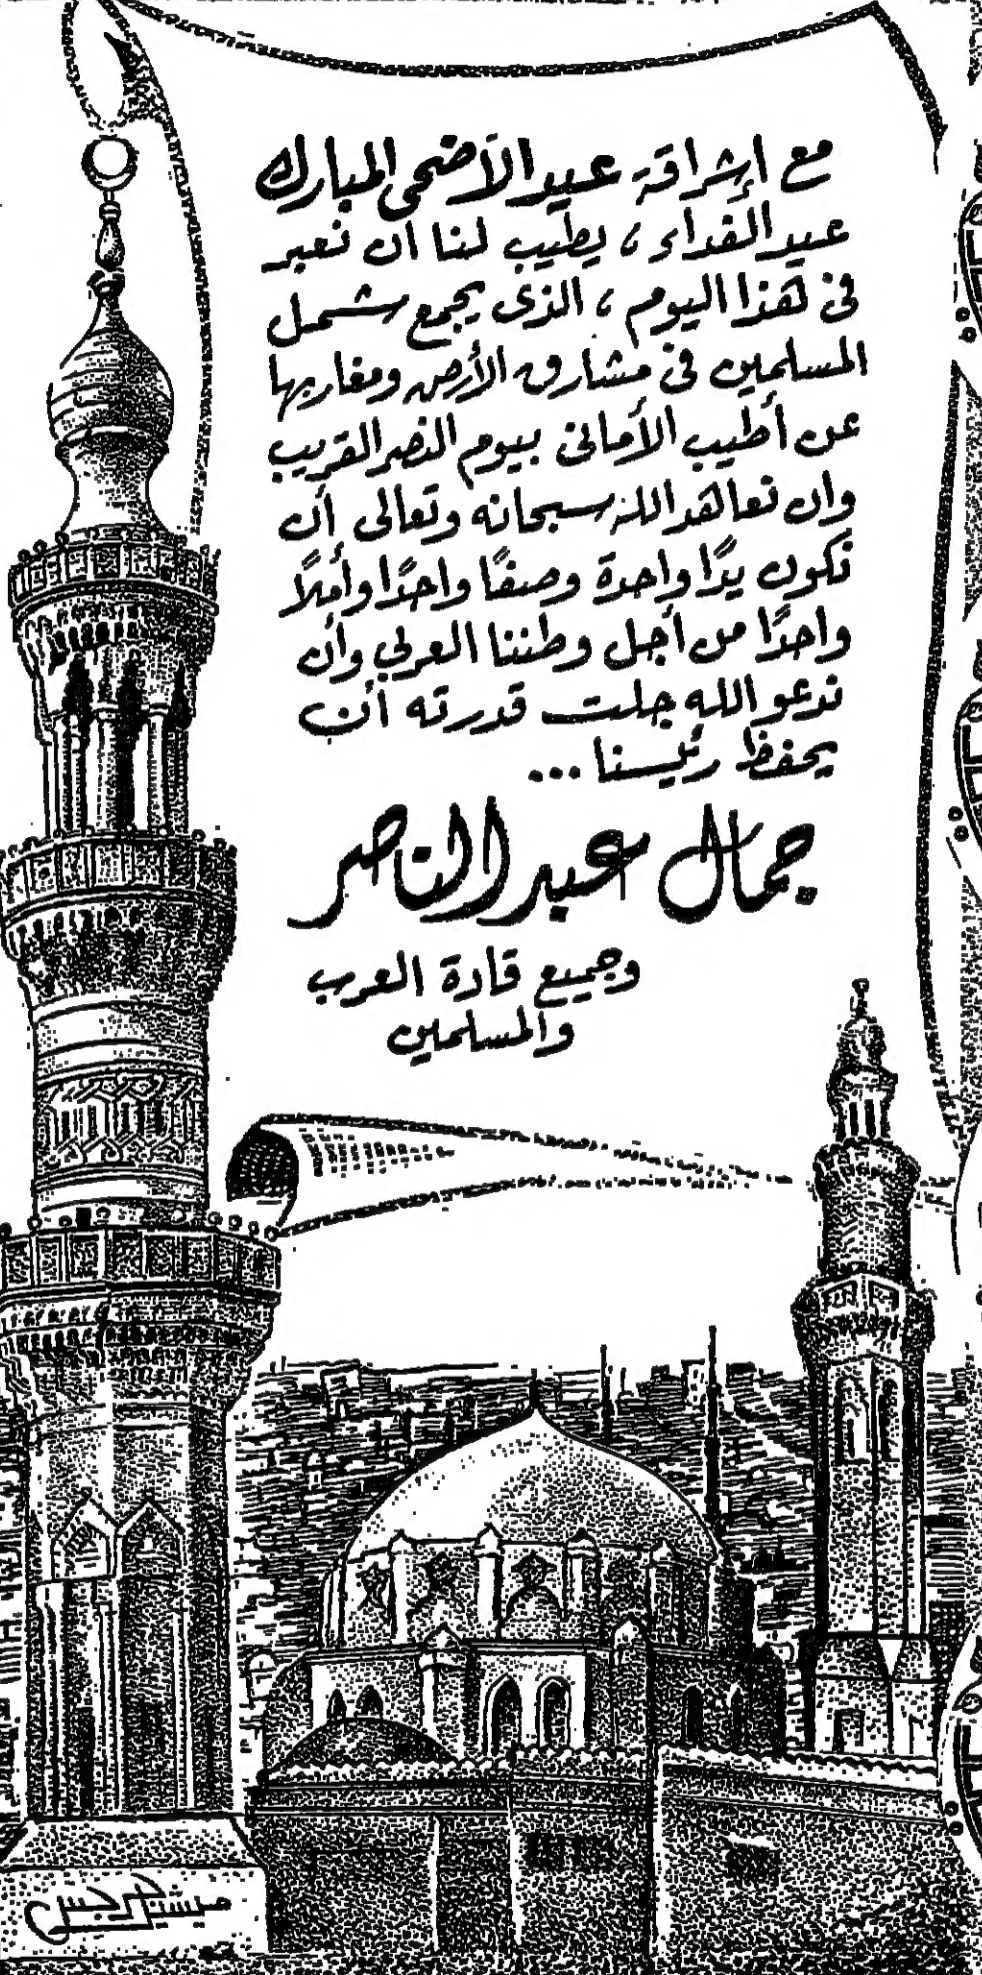 مع إشراقة عيد الأضحى المبارك
عيد الفداء ، يطيب لنا أن نعبر
فى هذا اليوم ، الذى يجمع شمل
المسلمين فى مشارق الأرض ومغاربها
عن أطيب الأمانى بيوم النصر القريب
وان نعاهد الله سبحانه وتعالى أن
نكون يدًا واحدة وصفًا واحدًا وأملًا
واحدًا من أجل وطننا العربي وأن
ندعو الله جلت قدرته أن
يحفظ رئيسنا ...
جمال عبد الناصر
وجميع قادة العرب
والمسلمين
ميشيل جرجس